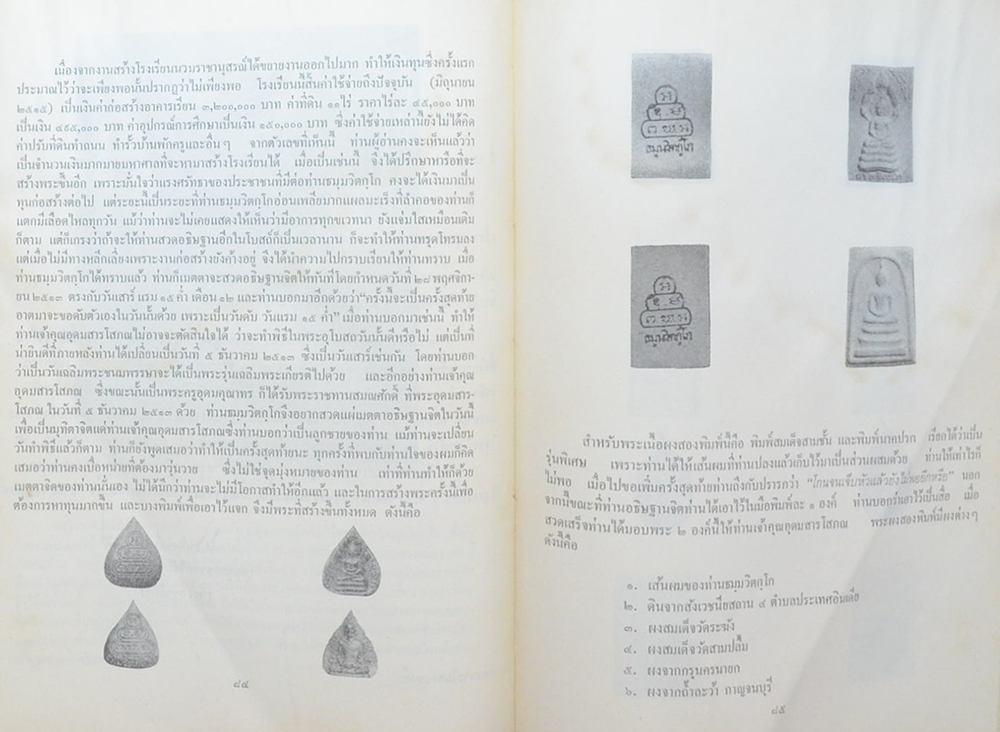 เนื่องจากงานสร้างโรงเรียนนวมราชานุสรณ์ได้ขยายงานออกไปมาก ทำให้เงินทุนซึ่งครั้งแรก
ประมาณไว้ว่าจะเพียงพอนั้นปรากฏว่าไม่เพียงพอ โรงเรียนนี้สิ้นค่าใช้จ่ายถึงปัจจุบัน (มิถุนายน
๒๕๑๕) เป็นเงินค่าก่อสร้างอาคารเรียน ๓,๒๐๐,๐๐๐ บาท ค่าที่ดิน ๑๑ไร่ ราคาไร่ละ ๔๕,๐๐๐ บาท
เป็นเงิน ๔๙๕,๐๐๐ บาท ค่าอุปกรณ์การศึกษาเป็นเงิน ๑๕๐,๐๐๐ บาท ซึ่งค่าใช้จ่ายเหล่านี้ยังไม่ได้คิด
ค่าปรับที่ดินทำถนน ทำรั้วบ้านพักครูและอื่นๆ จากตัวเลขที่เห็นนี้ ท่านผู้อ่านคงจะเห็นแล้วว่า
เป็นจำนวนเงินมากมายมหาศาลที่จะหามาสร้างโรงเรียนได้ เมื่อเป็นเช่นนี้ จึงได้ปรึกษาหารือที่จะ
สร้างพระขึ้นอีก เพราะมั่นใจว่าแรงศรัทธาของประชาชนที่มีต่อท่านธมฺมวิตกฺโก คงจะได้เงินมาเป็น
ทุนก่อสร้างต่อไป แต่ระยะนี้เป็นระยะที่ท่านธมฺมวิตกฺโกอ่อนเพลียมากแผลมะเร็งที่ลำคอของท่านก็
แตกมีเลือดไหลทุกวัน แม้ว่าท่านจะไม่เคยแสดงให้เห็นว่ามีอาการทุกขเวทนา ยังแจ่มใสเหมือนเดิม
ก็ตาม แต่ก็เกรงว่าถ้าจะให้ท่านสวดอธิษฐานอีกในโบสถ์ก็เป็นเวลานาน ก็จะทำให้ท่านทรุดโทรมลง
แต่เมื่อไม่มีทางหลีกเลี่ยงเพราะงานก่อสร้างยังค้างอยู่ จึงได้นำความไปกราบเรียนให้ท่านทราบ เมื่อ
ท่านธมฺมวิตกฺโกได้ทราบแล้ว ท่านก็เมตตาจะสวดอธิษฐานจิตให้ทันทีโดยกำหนดวันที่ ๒๘ พฤศจิกา-
ยน ๒๕๑๓ ตรงกับวันเสาร์ แรม ๑๕ ค่ำ เดือน ๑๒ และท่านบอกมาอีกด้วยว่า“ครั้งนี้จะเป็นครั้งสุดท้าย
อาตมาจะขอดับตัวเองในวันนั้นด้วย เพราะเป็นวันดับ วันแรม ๑๕ ค่ำ” เมื่อท่านบอกมาเช่นนี้ ทำให้
ท่านเจ้าคุณอุดมสารโสภณไม่อาจจะตัดสินใจได้ ว่าจะทำพิธีในพระอุโบสถวันนั้นดีหรือไม่ แต่เป็นที่
น่ายินดีที่ภายหลังท่านได้เปลี่ยนเป็นวันที่ ๕ ธันวาคม ๒๕๑๓ ซึ่งเป็นวันเสาร์เช่นกัน โดยท่านบอก
ว่าเป็นวันเฉลิมพระชนมพรรษาจะได้เป็นพระรุ่นเฉลิมพระเกียรติไปด้วย และอีกอย่างท่านเจ้าคุณ
อุดมสารโสภณ ซึ่งขณะนั้นเป็นพระครูอุดมคุณาทร ก็ได้รับพระราชทานสมณศักดิ์ ที่พระอุดมสาร-
โสภณ ในวันที่ ๕ ธันวาคม ๒๕๑๓ ด้วย ท่านธมฺมวิตกฺโกจึงอยากสวดแผ่เมตตาอธิษฐานจิตในวันนี้
เพื่อเป็นมุทิตาจิตแด่ท่านเจ้าคุณอุดมสารโสภณซึ่งท่านบอกว่าเป็นลูกชายของท่าน แม้ท่านจะเปลี่ยน
วันทำพิธีแล้วก็ตาม ท่านก็ยังพูดเสมอว่าทำให้เป็นครั้งสุดท้ายนะ ทุกครั้งที่พบกับท่านใจของผมก็คิด
เสมอว่าท่านคงเบื่อหน่ายที่ต้องมาวุ่นวาย ซึ่งไม่ใช่จุดมุ่งหมายของท่าน เท่าที่ท่านทำให้ก็ด้วย
เมตตาจิตของท่านนั่นเอง ไม่ได้นึกว่าท่านจะไม่มีโอกาสทำให้อีกแล้ว และในการสร้างพระครั้งนี้เพื่อ
ต้องการหาทุนมากขึ้น และบางพิมพ์เพื่อเอาไว้แจก จึงมีพระที่สร้างขึ้นทั้งหมด ดังนี้คือ
๘๔
ธมฺมวิตกฺโก
ธมฺมวิตกฺโก
สำหรับพระเนื้อผงสองพิมพ์นี้คือ พิมพ์สมเด็จสามชั้น และพิมพ์นาคปรก เรียกได้ว่าเป็น
รุ่นพิเศษ เพราะท่านได้ให้เส้นผมที่ท่านปลงแล้วเก็บไว้มาเป็นส่วนผสมด้วย ท่านให้เท่าไรก็
ไม่พอ เมื่อไปขอเพิ่มครั้งสุดท้ายท่านถึงกับปรารภว่า “โกนจนเจ็บหัวแล้วยังไม่พออีกหรือ” นอก
จากนี้ขณะที่ท่านอธิษฐานจิตท่านได้เอาไว้ในมือพิมพ์ละ ๑ องค์ ท่านบอกว่าเอาไว้เป็นสื่อ เมื่อ
สวดเสร็จท่านได้มอบพระ ๒ องค์นี้ให้ท่านเจ้าคุณอุดมสารโสภณ พระผงสองพิมพ์มีผงต่างๆ
ดังนี้คือ
๑. เส้นผมของท่านธมฺมวิตกฺโก
๒. ดินจากสังเวชนียสถาน ๔ ตำบลประเทศอินเดีย
๓. ผงสมเด็จวัดระฆัง
๔. ผงสมเด็จวัดสามปลื้ม
๕. ผงจากกรุนครนายก
๖. ผงจากถ้ำละว้า กาญจนบุรี
๘๕